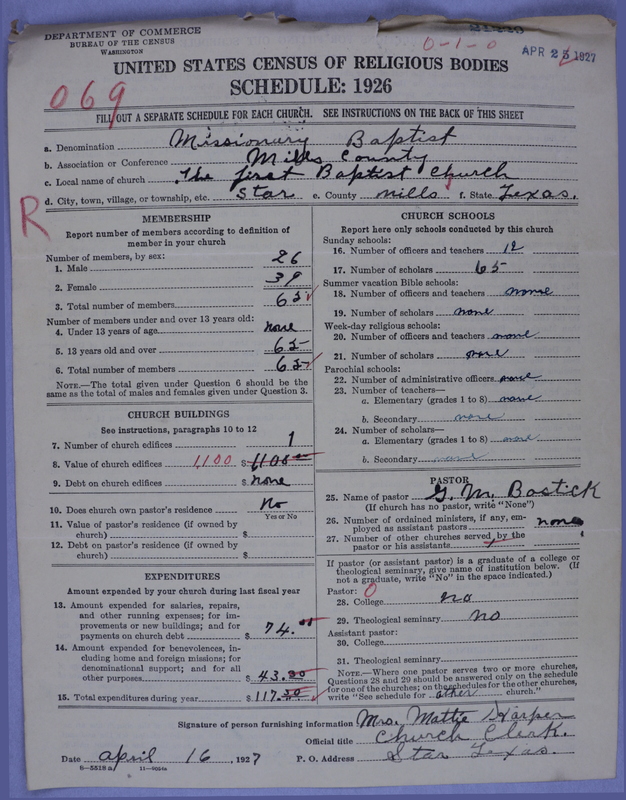 DEPARTMENT OF COMMERCE
BUREAU OF THE CENSUS
WASHINGTON
0-1-0
APR 25 1927
UNITED STATES CENSUS OF RELIGIOUS BODIES
SCHEDULE: 1926
069
FILL OUT A SEPARATE SCHEDULE FOR EACH CHURCH. SEE INSTRUCTIONS ON THE BACK OF THIS SHEET
a. Denomination Missionary Baptist
b. Association or Conference Mills County
c. Local name of church The first Baptist Church
d. City, town, village, or township, etc. Star e. County Mills f. State Texas.
R
MEMBERSHIP
Report number of members according to definition of
member in your church
Number of members, by sex:
1. Male 26
2. Female 39
3. Total number of members 65
Number of members under and over 13 years old:
4. Under 13 years of age none
5. 13 years old and over 65
6. Total number of members 65
NOTE.—The total given under Question 6 should be the
same as the total of males and females given under Question 3.
CHURCH BUILDINGS
See instructions, paragraphs 10 to 12
7. Number of church edifices 1
8. Value of church edifices 1,100 $1100
9. Debt on church edifices $none
10. Does church own pastor's residence? No
Yes or No
11. Value of pastor's residence (if owned by
church) $
12. Debt on pastor's residence (if owned by
church) $
EXPENDITURES
Amount expended by your church during last fiscal year
13. Amount expended for salaries, repairs,
and other running expenses; for im-
provements or new buildings; and for
payments on church debt $74.00
14. Amount expended for benevolences, in-
cluding home and foreign missions; for
denominational support; and for all
other purposes $43.30
15. Total expenditures during year $117.30
CHURCH SCHOOLS
Report here only schools conducted by this church
Sunday schools:
16. Number of officers and teachers 12
17. Number of scholars 65
Summer vacation Bible schools:
18. Number of officers and teachers none
19. Number of scholars none
Week-day religious schools:
20. Number of officers and teachers none
21. Number of scholars none
Parochial schools:
22. Number of administrative officers none
23. Number of teachers—
a. Elementary (grades 1 to 8) none
b. Secondary none
24. Number of scholars—
a. Elementary (grades 1 to 8) none
b. Secondary none
PASTOR
25. Name of pastor G. M. Bostick
(If church has no pastor, write "None")
26. Number of ordained ministers, if any, em-
ployed as assistant pastors none
27. Number of other churches served by the
pastor or his assistants
If pastor (or assistant pastor) is a graduate of a college or
theological seminary, give name of institution below. (If
not a graduate, write "No" in the space indicated.)
Pastor: 0
28. College no
29. Theological seminary no
Assistant pastor:
30. College
31. Theological seminary
NOTE.—Where one pastor serves two or more churches,
Questions 28 and 29 should be answered only on the schedule
for one of the churches; on the schedules for the other churches,
write "See schedule for other church."
Signature of person furnishing information Mrs. Mattie Harper
Official title Church Clerk.
Date April 16, 1927 P. O. Address Star Texas.
8-5518a